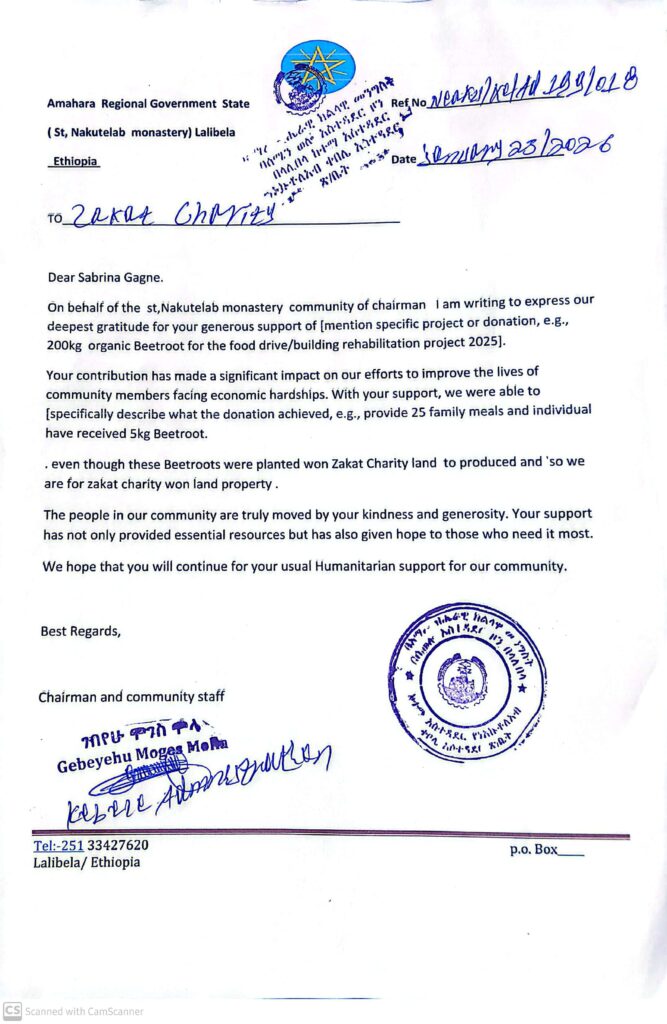 Amahara Regional Government State
( St, Nakutelab monastery) Lalibela
Ethiopia
Ref No
Date January 23/2026
TO Zakat Charity
Dear Sabrina Gagne.
On behalf of the st,Nakutelab monastery community of chairman I am writing to express our
deepest gratitude for your generous support of [mention specific project or donation, e.g.,
200kg organic Beetroot for the food drive/building rehabilitation project 2025].
Your contribution has made a significant impact on our efforts to improve the lives of
community members facing economic hardships. With your support, we were able to
[specifically describe what the donation achieved, e.g., provide 25 family meals and individual
have received 5kg Beetroot.
. even though these Beetroots were planted won Zakat Charity land to produced and 'so we
are for zakat charity won land property .
The people in our community are truly moved by your kindness and generosity. Your support
has not only provided essential resources but has also given hope to those who need it most.
We hope that you will continue for your usual Humanitarian support for our community.
Best Regards,
Chairman and community staff
ገብየሁ ሞገስ ሞላ
Gebeyehu Moges Molla
Tel:-251 33427620
Lalibela/ Ethiopia
p.o. Box____
CS Scanned with CamScanner